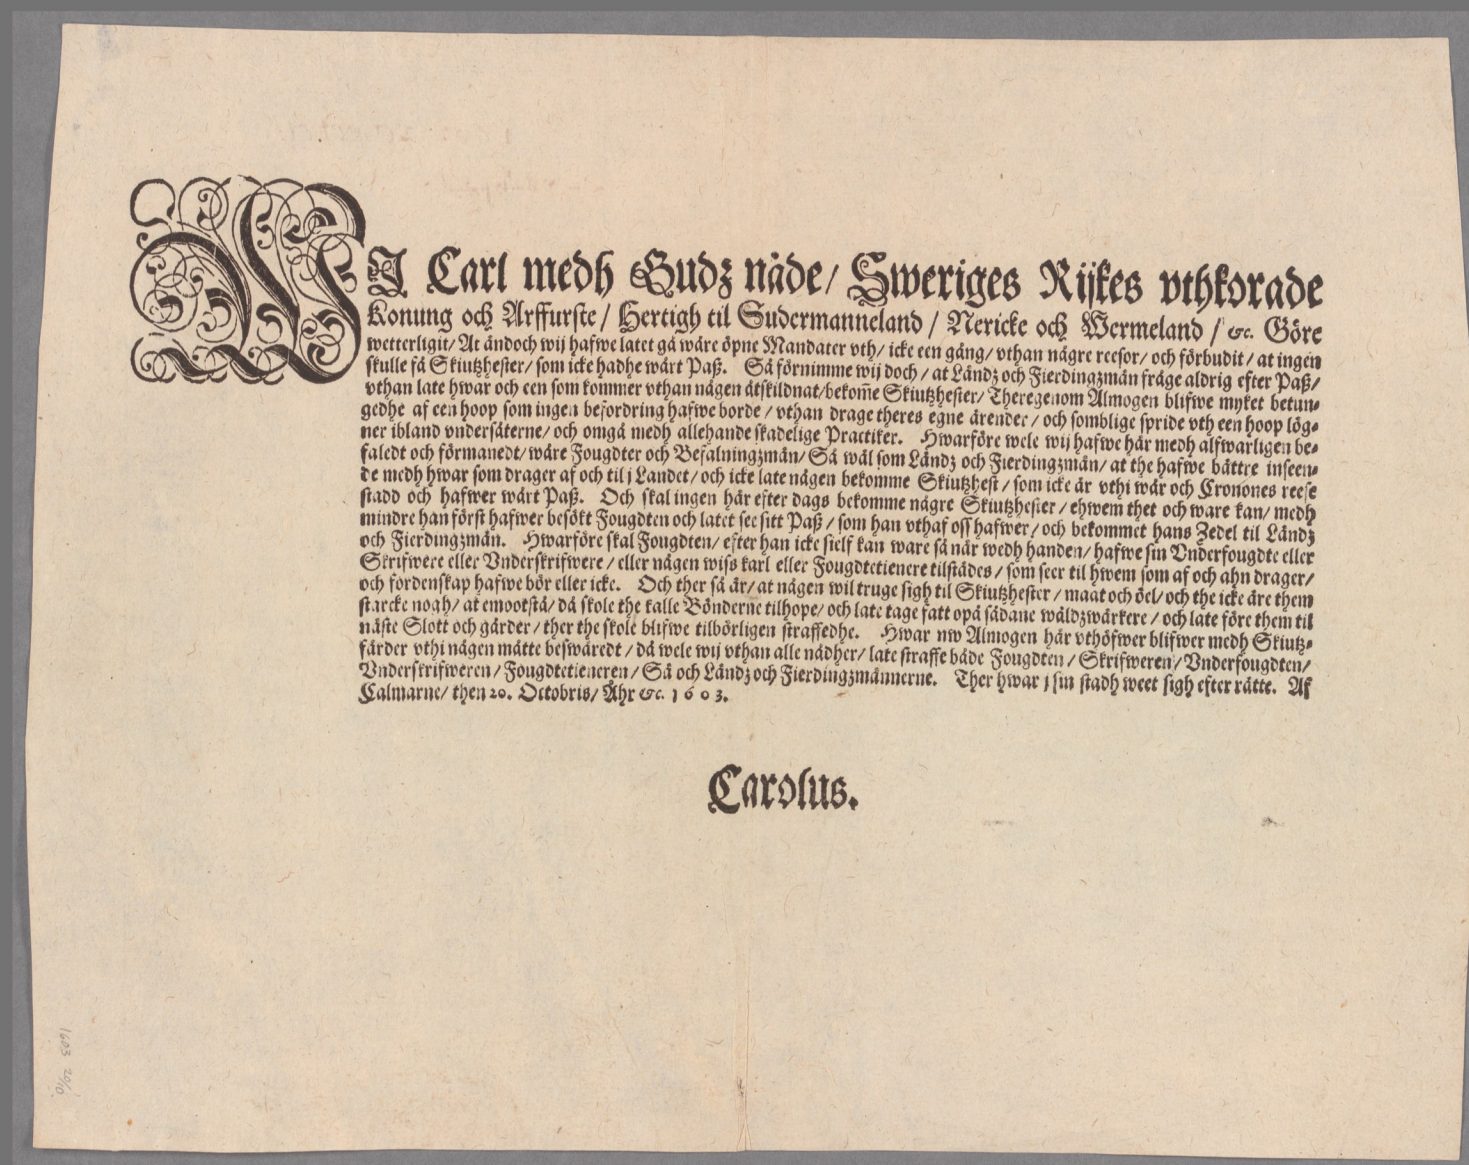 WJ Carl medh Gudz nåde/ Sweriges Rijkes vthkorade
Konung och Arffurste/ Hertigh til Sudermanneland/ Nericke och Wermeland/ &c. Göre
wetterligit/ At ändoch wij hafwe latet gå wåre öpne Mandater vth/ icke een gång/ vthan någre reesor/ och förbudit/ at ingen
skulle få Skiutzhester/ som icke hadhe wårt Paß. Så förnimme wij doch/ at Ländz och Fierdingzmän fråge aldrig efter Paß/
vthan late hwar och een som kommer vthan någen åtskildnat/ bekom̃e Skiutzhester/ Theregenom Almogen blifwe myket betun-
gedhe af een hoop som ingen befordring hafwe borde/ vthan drage theres egne ärender/ och somblige spride vth een hoop lög-
ner ibland vndersåterne/ och omgå medh allehande skadelige Practiker. Hwarföre wele wij hafwe här medh alfwarligen be-
faledt och förmanedt/ wåre Fougdter och Befalningzmän/ Så wäl som Ländz och Fierdingzmän/ at the hafwe bättre inseen-
de medh hwar som drager af och til j Landet/ och icke late någen bekomme Skiutzhest/ som icke är vthi wår och Cronones reese
stadd och hafwer wårt Paß. Och skal ingen här efter dags bekomme någre Skiutzhester/ ehwem thet och ware kan/ medh
mindre han först hafwer besökt Fougdten och latet see sitt Paß/ som han vthaf oss hafwer/ och bekommet hans Zedel til Ländz
och Fierdingzmän. Hwarföre skal Fougdten/ efter han icke sielf kan ware så när wedh handen/ hafwe sin Vnderfougdte eller
Skrifwere eller Vnderskrifwere/ eller någen wiss karl eller Fougdtetienere tilstådes/ som seer til hwem som af och ahn drager/
och fordenskap hafwe bör eller icke. Och ther så är/ at någen wil truge sigh til Skiutzhester/ maat och öel/ och the icke äre them
starcke nogh/ at emootstå/ då skole the kalle Bönderne tilhope/ och late tage fatt opå sådane wåldzwärkere/ och late före them til
näste Slott och gårder/ ther the skole blifwe tilbörligen straffedhe. Hwar nw Almogen här vthöfwer blifwer medh Skiutz-
färder vthi någen måtte beswäredt/ då wele wij vthan alle nådher/ late straffe både Fougdten/ Skrifweren/ Vnderfougdten/
Vnderskrifweren/ Fougdtetieneren/ Så och Ländz och Fierdingzmännerne. Ther hwar j sin stadh weet sigh efter rätte. Af
Calmarne/ then 20. Octobris/ Åhr &c. 1603.
Carolus.
1603 20/10.